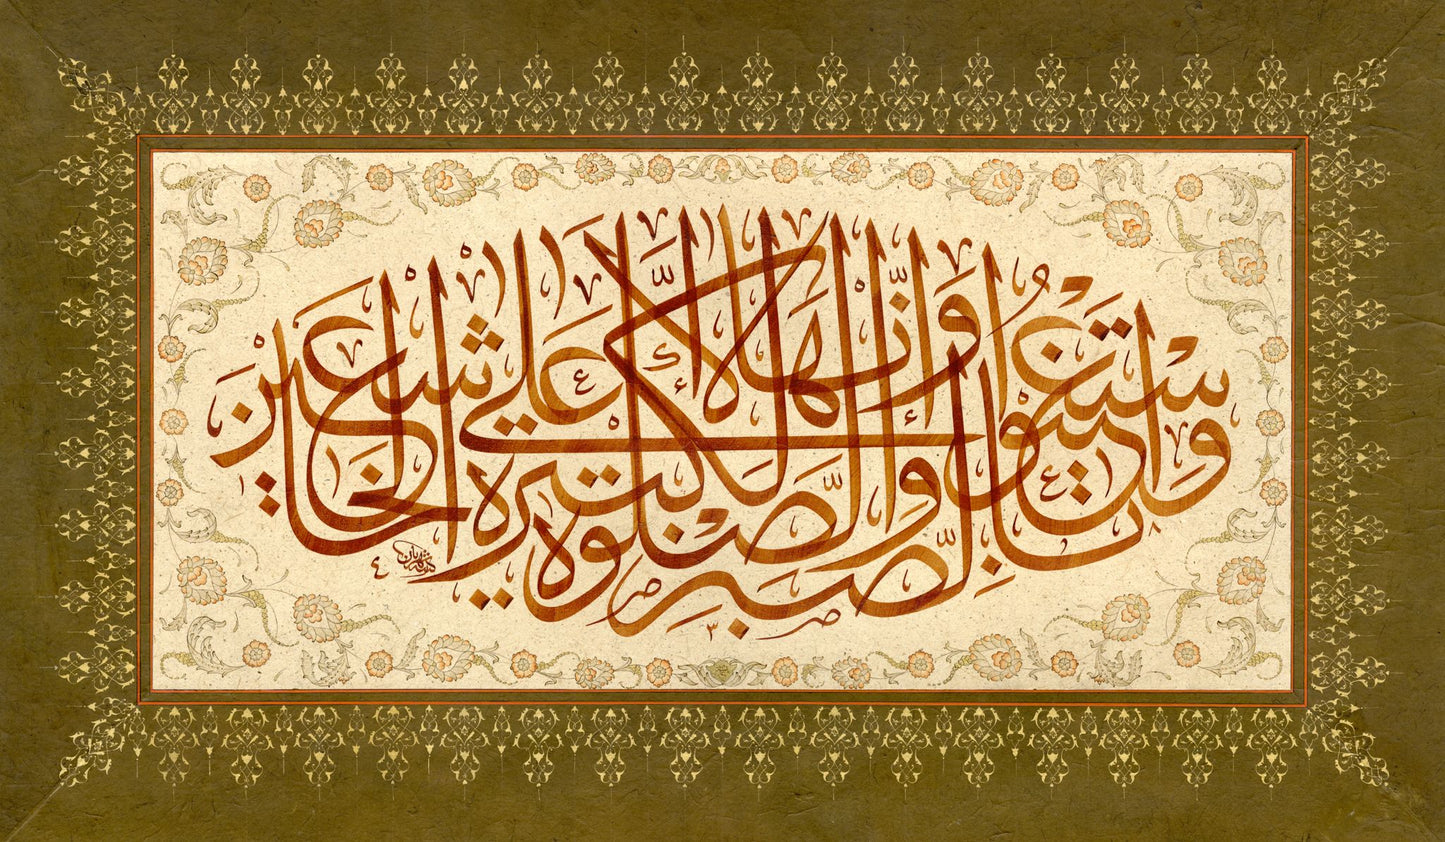 واستعينوا بالصبر والصلوة وإنها لكبيرة إلا على الخاشعين